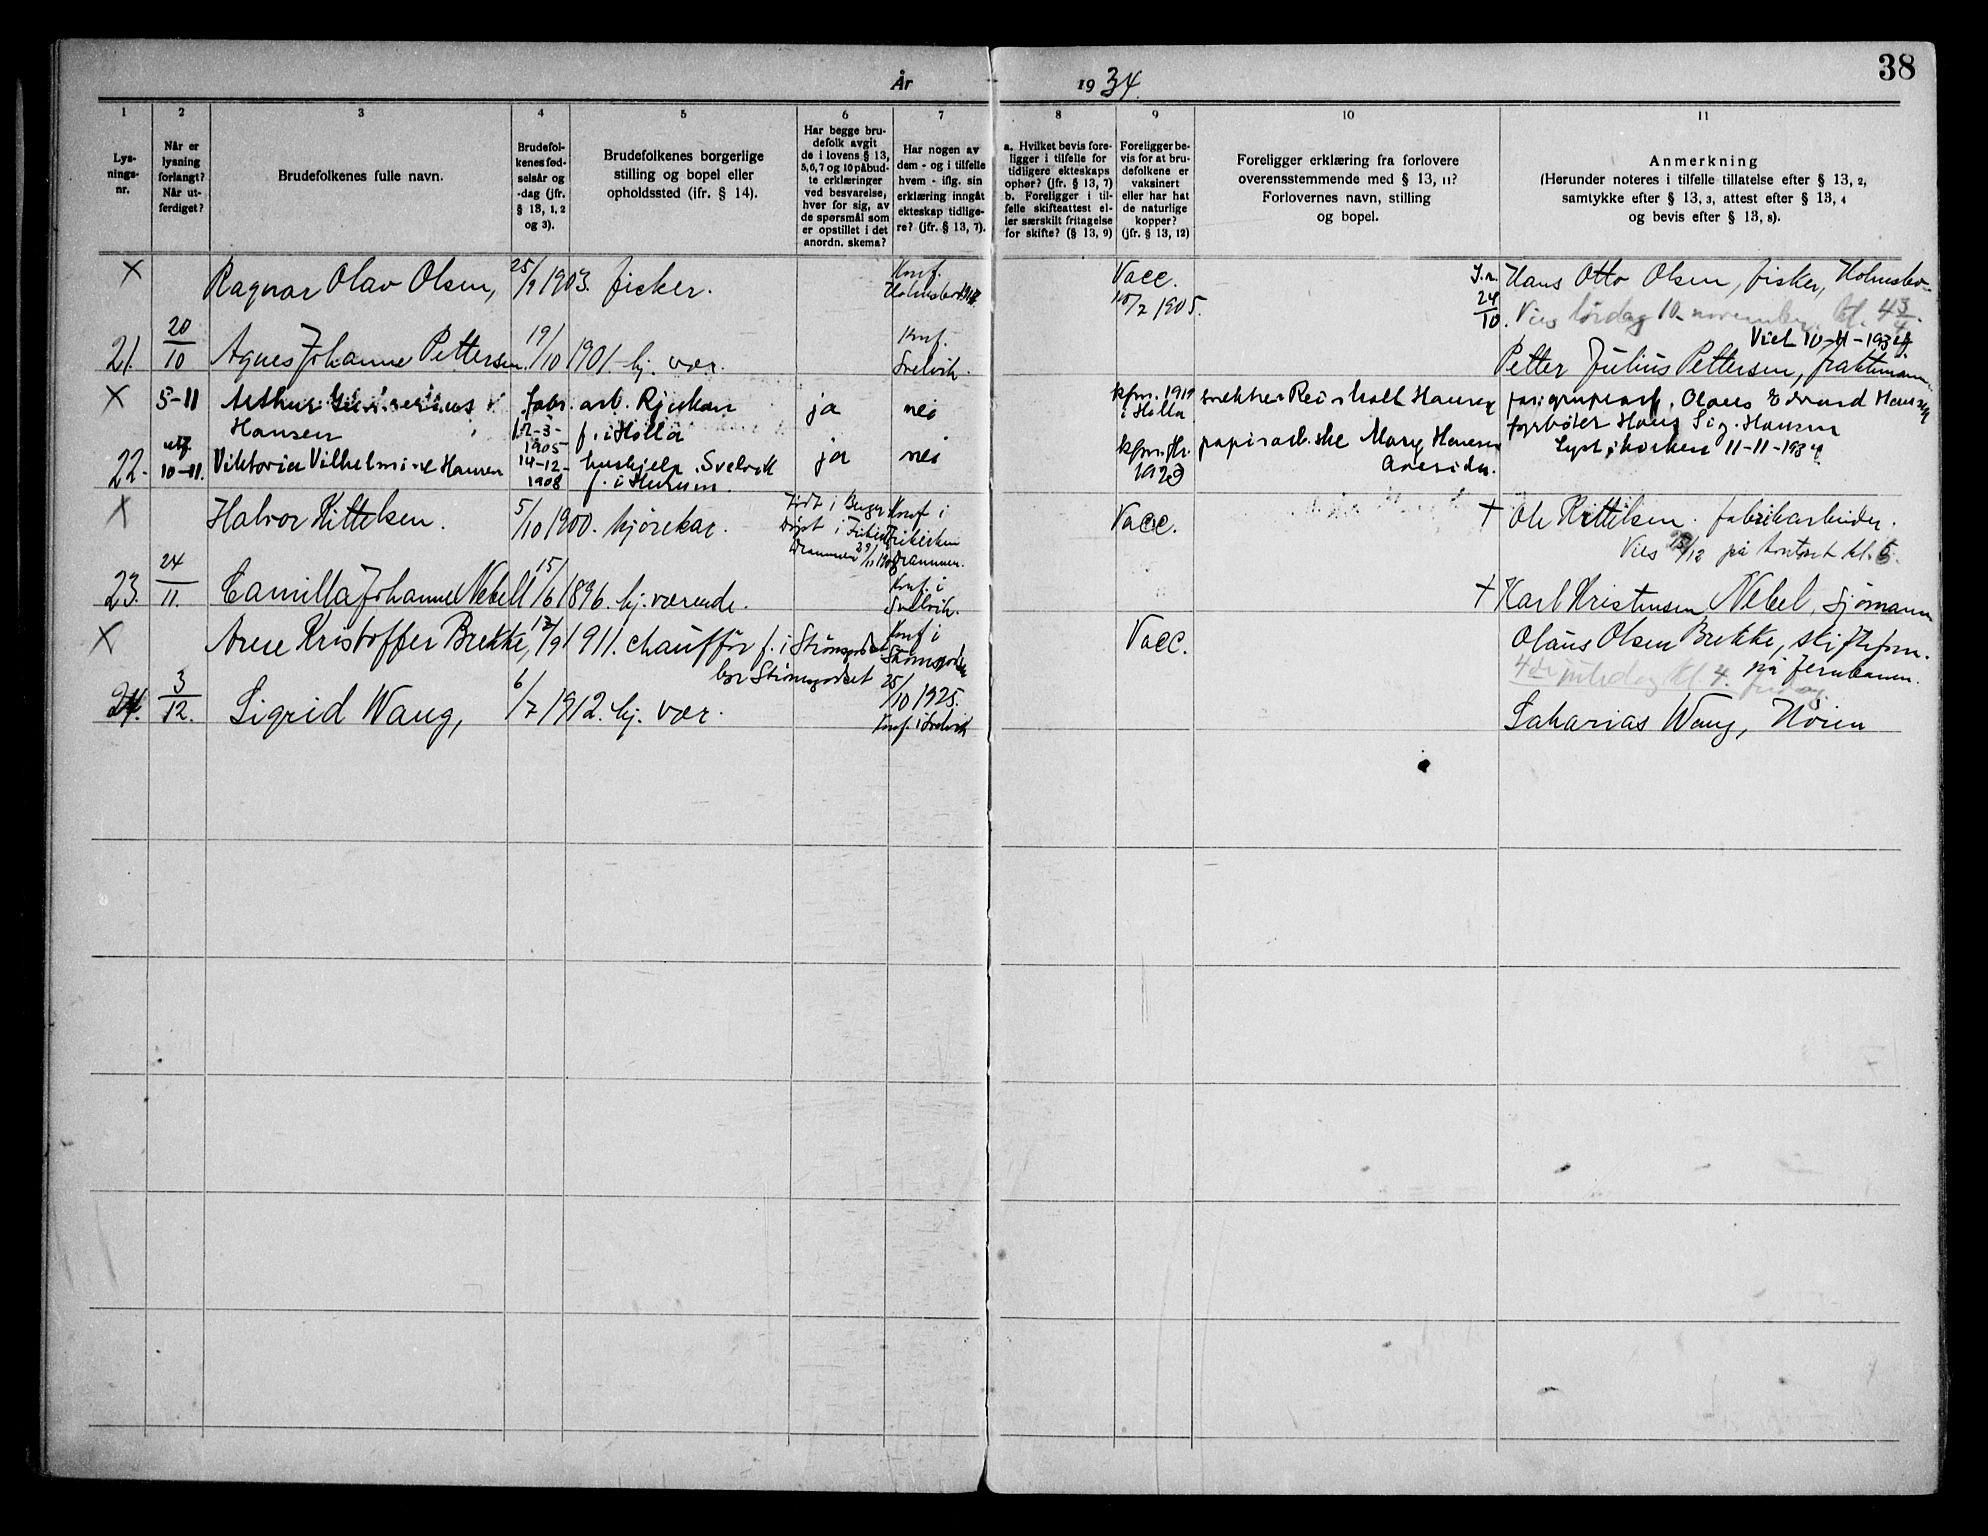 38
År 1934.
1
2
3
4
5
6
7
8
9
10
11
Lys-
nings-
nr.
Når er
lysning
forlangt?
Når ut-
ferdiget?
Brudefolkenes fulle navn.
Brudefol-
kenes fød-
selsår og
-dag (jfr.
§ 13, 1, 2
og 3).
Brudefolkenes borgerlige
stilling og bopel eller
opholdssted (ifr. § 14).
Har begge bru-
defolk avgit
de i lovens § 13,
5, 6, 7 og 10 påbud-
te erklæringer
ved besvarelse,
hver for sig, av
de spørsmål som
er opstillet i det
anordn. skema?
Har nogen av
dem - og i tilfelle
hvem - iflg. sin
erklæring inngåt
ekteskap tidlige-
re? (jfr. § 13, 7).
a. Hvilket bevis fore-
ligger i tilfelle for
tidligere ekteskaps
ophør? (jfr. § 13, 7)
b. Foreligger i til-
felle skifteattest el-
ler særskilt fritagelse
for skifte? (§ 13, 9)
Foreligger be-
vis for at bru-
defolkene er
vaksinert
eller har hat
de naturlige
kopper?
(jfr. § 13, 12)
Foreligger erklæring fra forlovere
overensstemmende med § 13, 11?
Forlovernes navn, stilling
og bopel.
Anmerkning
(Herunder noteres i tilfelle tillatelse efter § 13, 2,
samtykke efter § 13, 3, attest efter § 13, 4
og bevis efter § 13, 8).
X Ragnar Olav Olsen, 25/9 1903. fisker. Konf. Holmsbo Vacc. 10/2 1905. 24/10. Hans Otto Olsen, fisker, Holmsbo
Vies lørdag 10 november kl. 4 3/4.
Viet 10-11-1934
21. 20/10 Agnes Johanne Pettersen. 19/10 1901 hj. vær. Konf. Svelvik. Petter Julius Pettersen, fraktmann
X 5-11 Arthur
Hansen 12-3-1905 fabr. arb. Rjukan
f. i Holla ja nei kfm. 1919
i Holla Hansen Olaus Edvard Hansen
fyrbøter Hans Sig. Hansen
22. utf. 10-11. Viktoria Vilhelmine Hansen 14-12-1908 hushjelp. Svelvik
f. i Hurum. ja nei 1923 papirarb.ske Mary Hansen Lyst i kirken 11-11-1934
X Halvor Kittelsen. 5/10 1900. kjørekar. Født i Berger
døpt i
Drammen Konf i
Frikirken
Drammen. Vacc. + Ole Kittelsen. fabrikarbeider.
Vies /12 på kontoret kl. 5.
23. 24/11. Camilla Johanne Nebell 15/6 1896. hj. værende. Konf. i
Svelvik. + Karl Kristensen Nebel, sjømann
X Arne Kristoffer Brekke, 13/9 1911. chauffør f. i Strømsgodset
bor Strømsgodset Konf i
Strømsgodset
25/10 1925. Vacc. Olaus Olsen Brekke, skifteform.
på Jernbanen.
4de juledag kl. 4. fredag
24. 3/12. Sigrid Waug, 6/7 1912. hj. vær. Konf. i Svelvik Saharias Waug, Høien